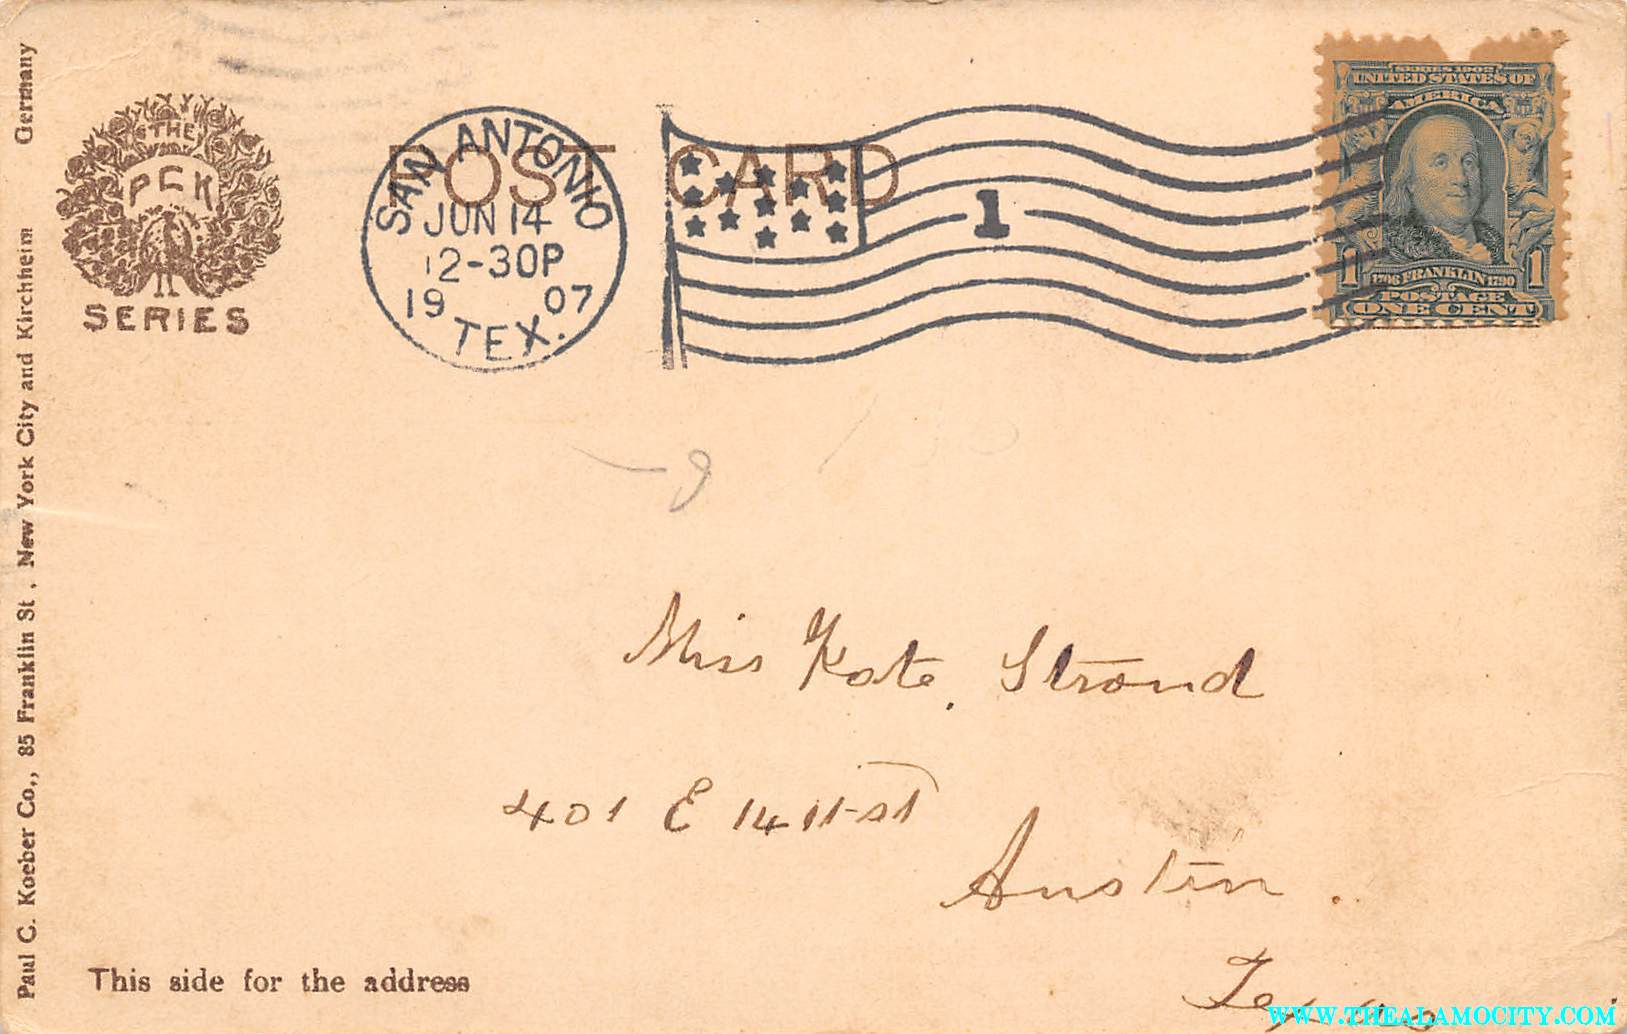 Paul C. Koeber Co,, 85 Franklin St. , New York City and Kirchheim Germany
THE
PCK
SERIES
POST CARD
SAN ANTONIO
JUN 14
12-30P
19 07
TEX.
1
SERIES 1902
UNITED STATES OF
AMERICA
1 1706 FRANKLIN 1790 1
POSTAGE
ONE CENT
Miss Kate Strand
401 E 14 th st
Austin.
Texas
This side for the address
WWW.THEALAMOCITY.COM